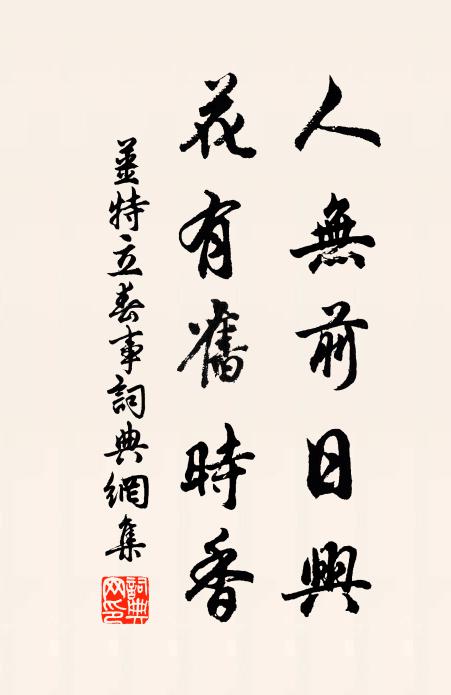 人無前日興
花有舊時香
薑特立春事詞典網集
詞典网印